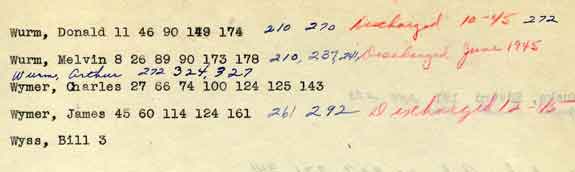 Wurm, Donald 11 46 90 149 174 210 270 Discharged 10-45 272
Wurm, Melvin 8 26 89 90 173 178 210, 237, 241, Discharged June 1945
Wurm, Arthur 272 324, 327
Wymer, Charles 27 66 74 100 124 125 143
Wymer, James 45 60 114 124 161 261 292 Discharged 12-45
Wyss, Bill 3